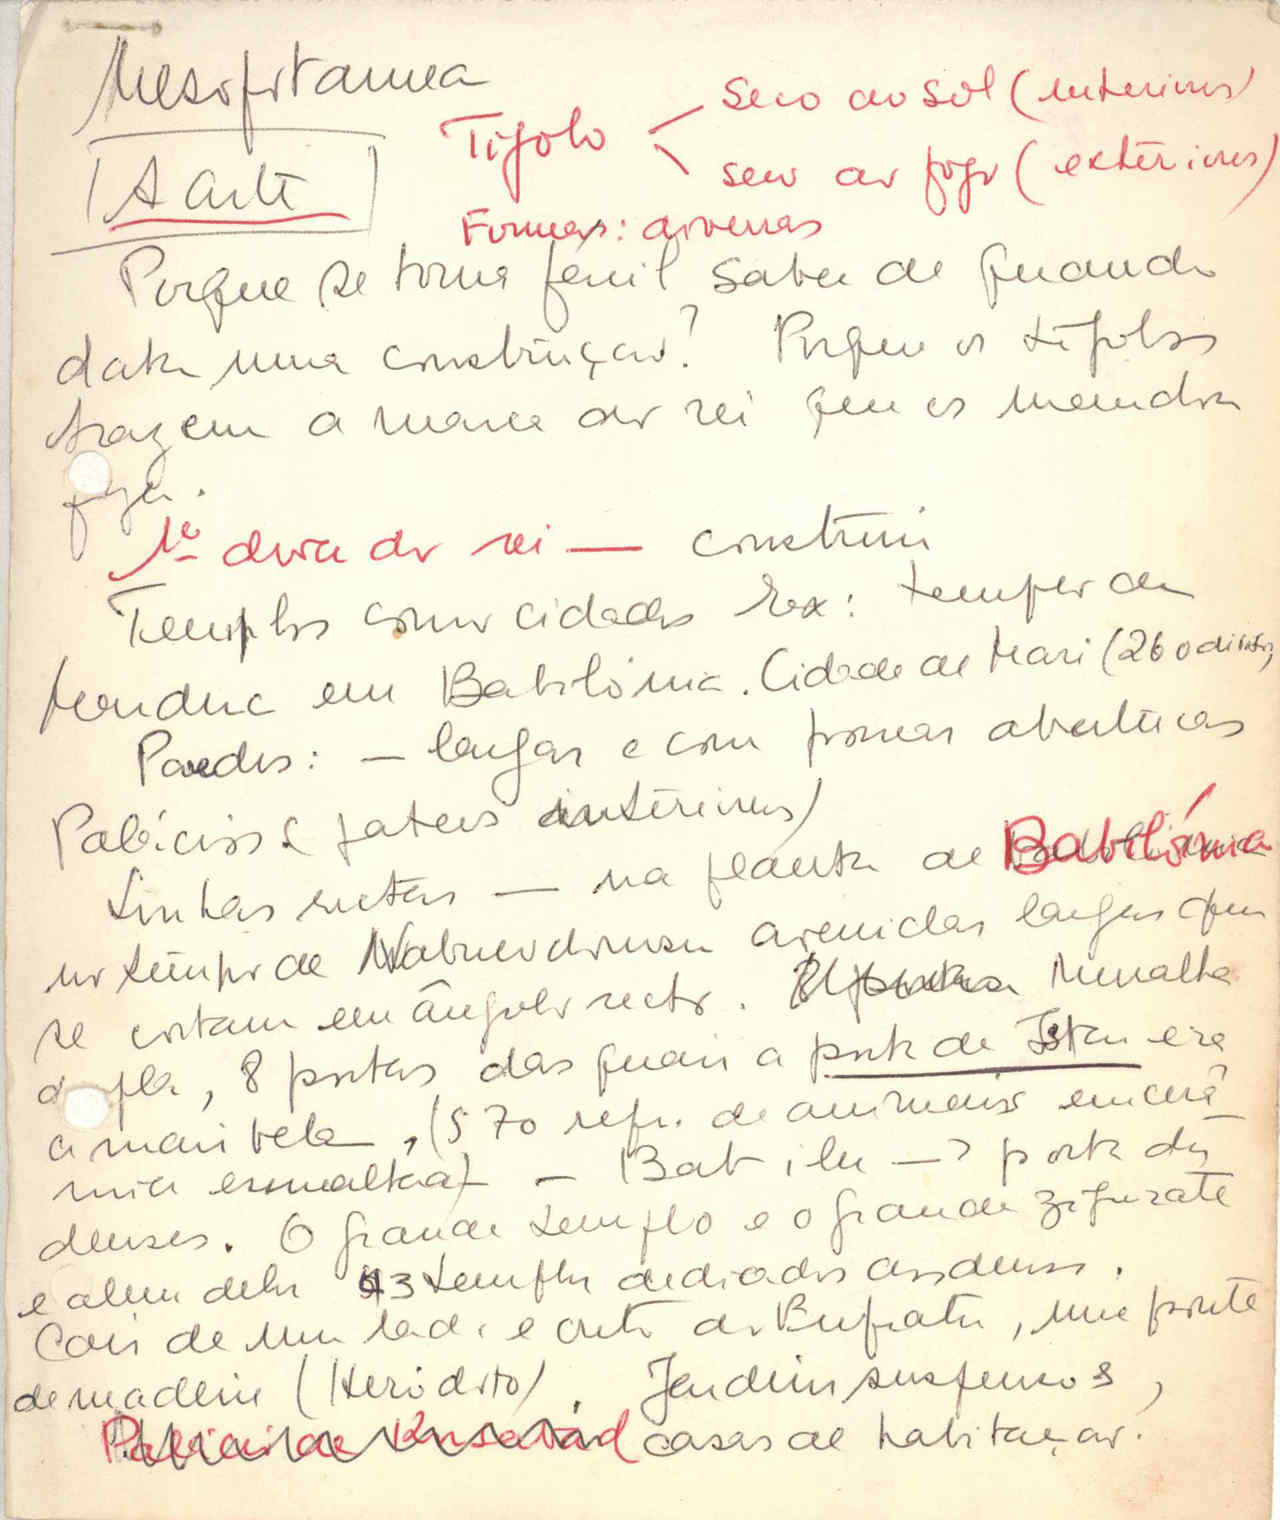 Mesopotamea
Tijolo
seco ao sol (interiores)
seco ao fogo (extèriores)
A arte
Formas: diversas
Porque se torna fácil saber de quando
data uma construção? Porque os tijolos
trazem a marca do rei que os mandou
fazer.
1º dever do rei — construir
Templos como cidades Ex: templo de
Marduc em Babilónia. Cidade de Mari (260 divisões)
Paredes: — largas e com poucas aberturas
Palácios (pateos intèriores)
Linhas rectas — na planta de Babilónia
no tempo de Nabucodonosor avenidas largas que
se cortam em ângulo recto. Muralha
dupla, 8 portas das quais a porta de Istar era
a mais bela, (570 repr. de animais em cerâ-
mica esmaltada) — Bab ilu —> porta dos
deuses. O grande templo e o grande zigurate
e além deles 43 templos dedicados aos deuses.
Cais de um lado e outro do Eufrates, uma ponte
de madeira (Heródoto). Jardins suspensos,
Palácio de Korsabad casas de habitação.